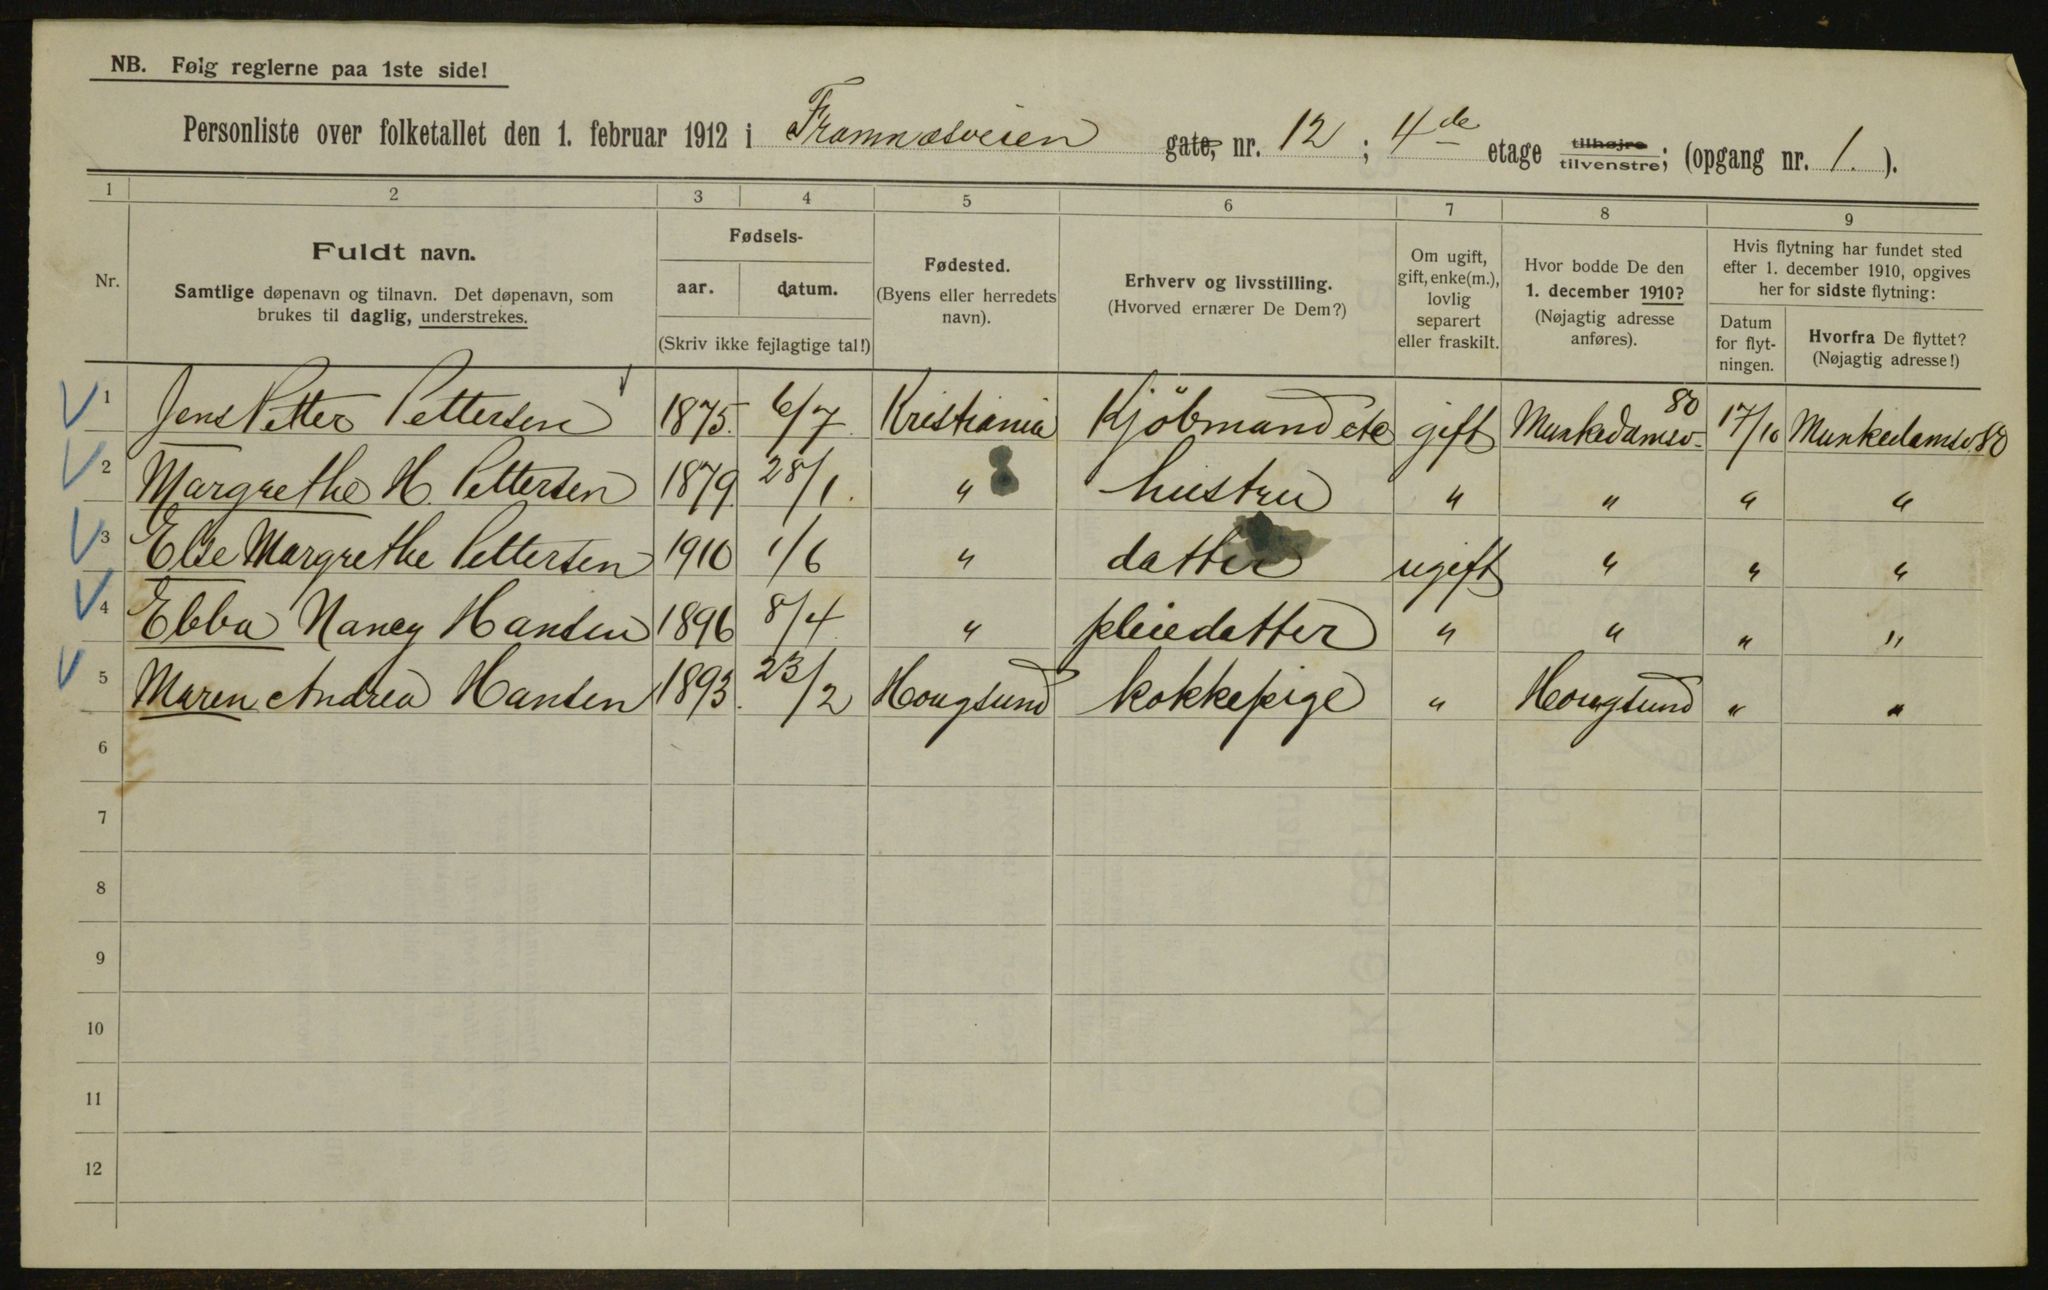 NB. Følg reglerne paa 1ste side!
Personliste over folketallet den 1. februar 1912 i Framnæsveien gate, nr. 12 ; 4de etage tilhøjre tilvenstre; (opgang nr. 1. ).
1 2 3 4 5 6 7 8 9
Nr.
Fuldt navn.
Samtlige døpenavn og tilnavn. Det døpenavn, som
brukes til daglig, understrekes.
Fødsels-
aar. datum.
(Skriv ikke fejlagtige tal!)
Fødested.
(Byens eller herredets
navn).
Erhverv og livsstilling.
(Hvorved ernærer De Dem?)
Om ugift,
gift, enke(m.),
lovlig
separert
eller fraskilt.
Hvor bodde De den
1. december 1910?
(Nøjagtig adresse
anføres).
Hvis flytning har fundet sted
efter 1. december 1910, opgives
her for sidste flytning:
Datum
for flyt-
ningen.
Hvorfra De flyttet?
(Nøjagtig adresse!)
1 Jens Petter Pettersen 1875. 6/7. Kristiania Kjöbmand etc gift Munkedamsv. 80 17/10 Munkedamsv. 80
2 Margrethe H. Pettersen 1879. 28/1. " hustru " " " "
3 Else Margrethe Pettersen 1910 1/6 " datter ugift " " "
4 Ebba Nancy Hansen 1896 8/4. " pleiedatter " " " "
5 Maren Andrea Hansen 1893. 23/2 Hougsund kokkepige " Hougsund " "
6
7
8
9
10
11
12